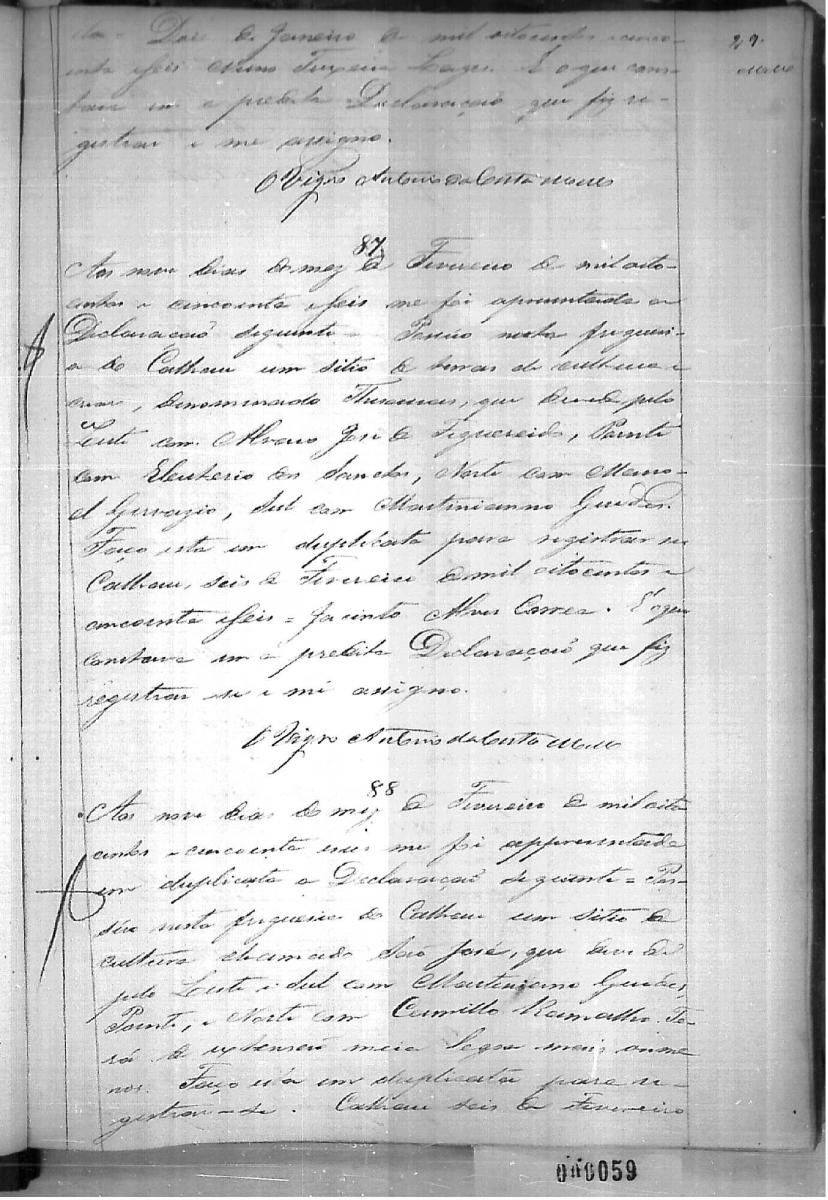 da. Dois de Janeiro de mil oitocentos e cinco-
enta e seis Teixeira E o que cons-
tava em a predita Declaração que fiz re-
gistrar e me assigno.
O Vigro Antonio da Costa
29.
87
Aos nove dias do mez de Fevereiro de mil oito-
centos e cincoenta e seis me foi apresentada a
Declaração seguinte = Possuo nesta freguesi-
a do Calhau um sitio de terras de cultura e
criar, denominado que devide pelo
Leste com Alvaro José de Figueiredo, Poente
com Eleuterio dos Santos, Norte com Mano-
el Gervazio, Sul com Martinianno Guedes.
Faço esta em duplicata para registrar se
Calhau, seis de Fevereiro de mil oitocentos e
cincoenta e seis = Jacinto Alves Correa. E o que
constava em a predita Declaração que fiz
registrar se e me assigno.
O Vigro Antonio da Costa
88
Aos nove dias do mez de Fevereiro de mil oito
centos e cincoenta e seis me foi appresentada
em duplicata a Declaração seguinte = Pos-
súo nesta freguesia do Calhau um sitio de
cultura chamado São José, que devide
pelo Leste e Sul com Martiniano Guedes,
Poente, e Norte com Camillo Ramalho. Te-
rá de extensão meia legoa mais ou me
nos. Faço esta em duplicata para re-
gistrar-se. Calhau seis de Fevereiro
000059